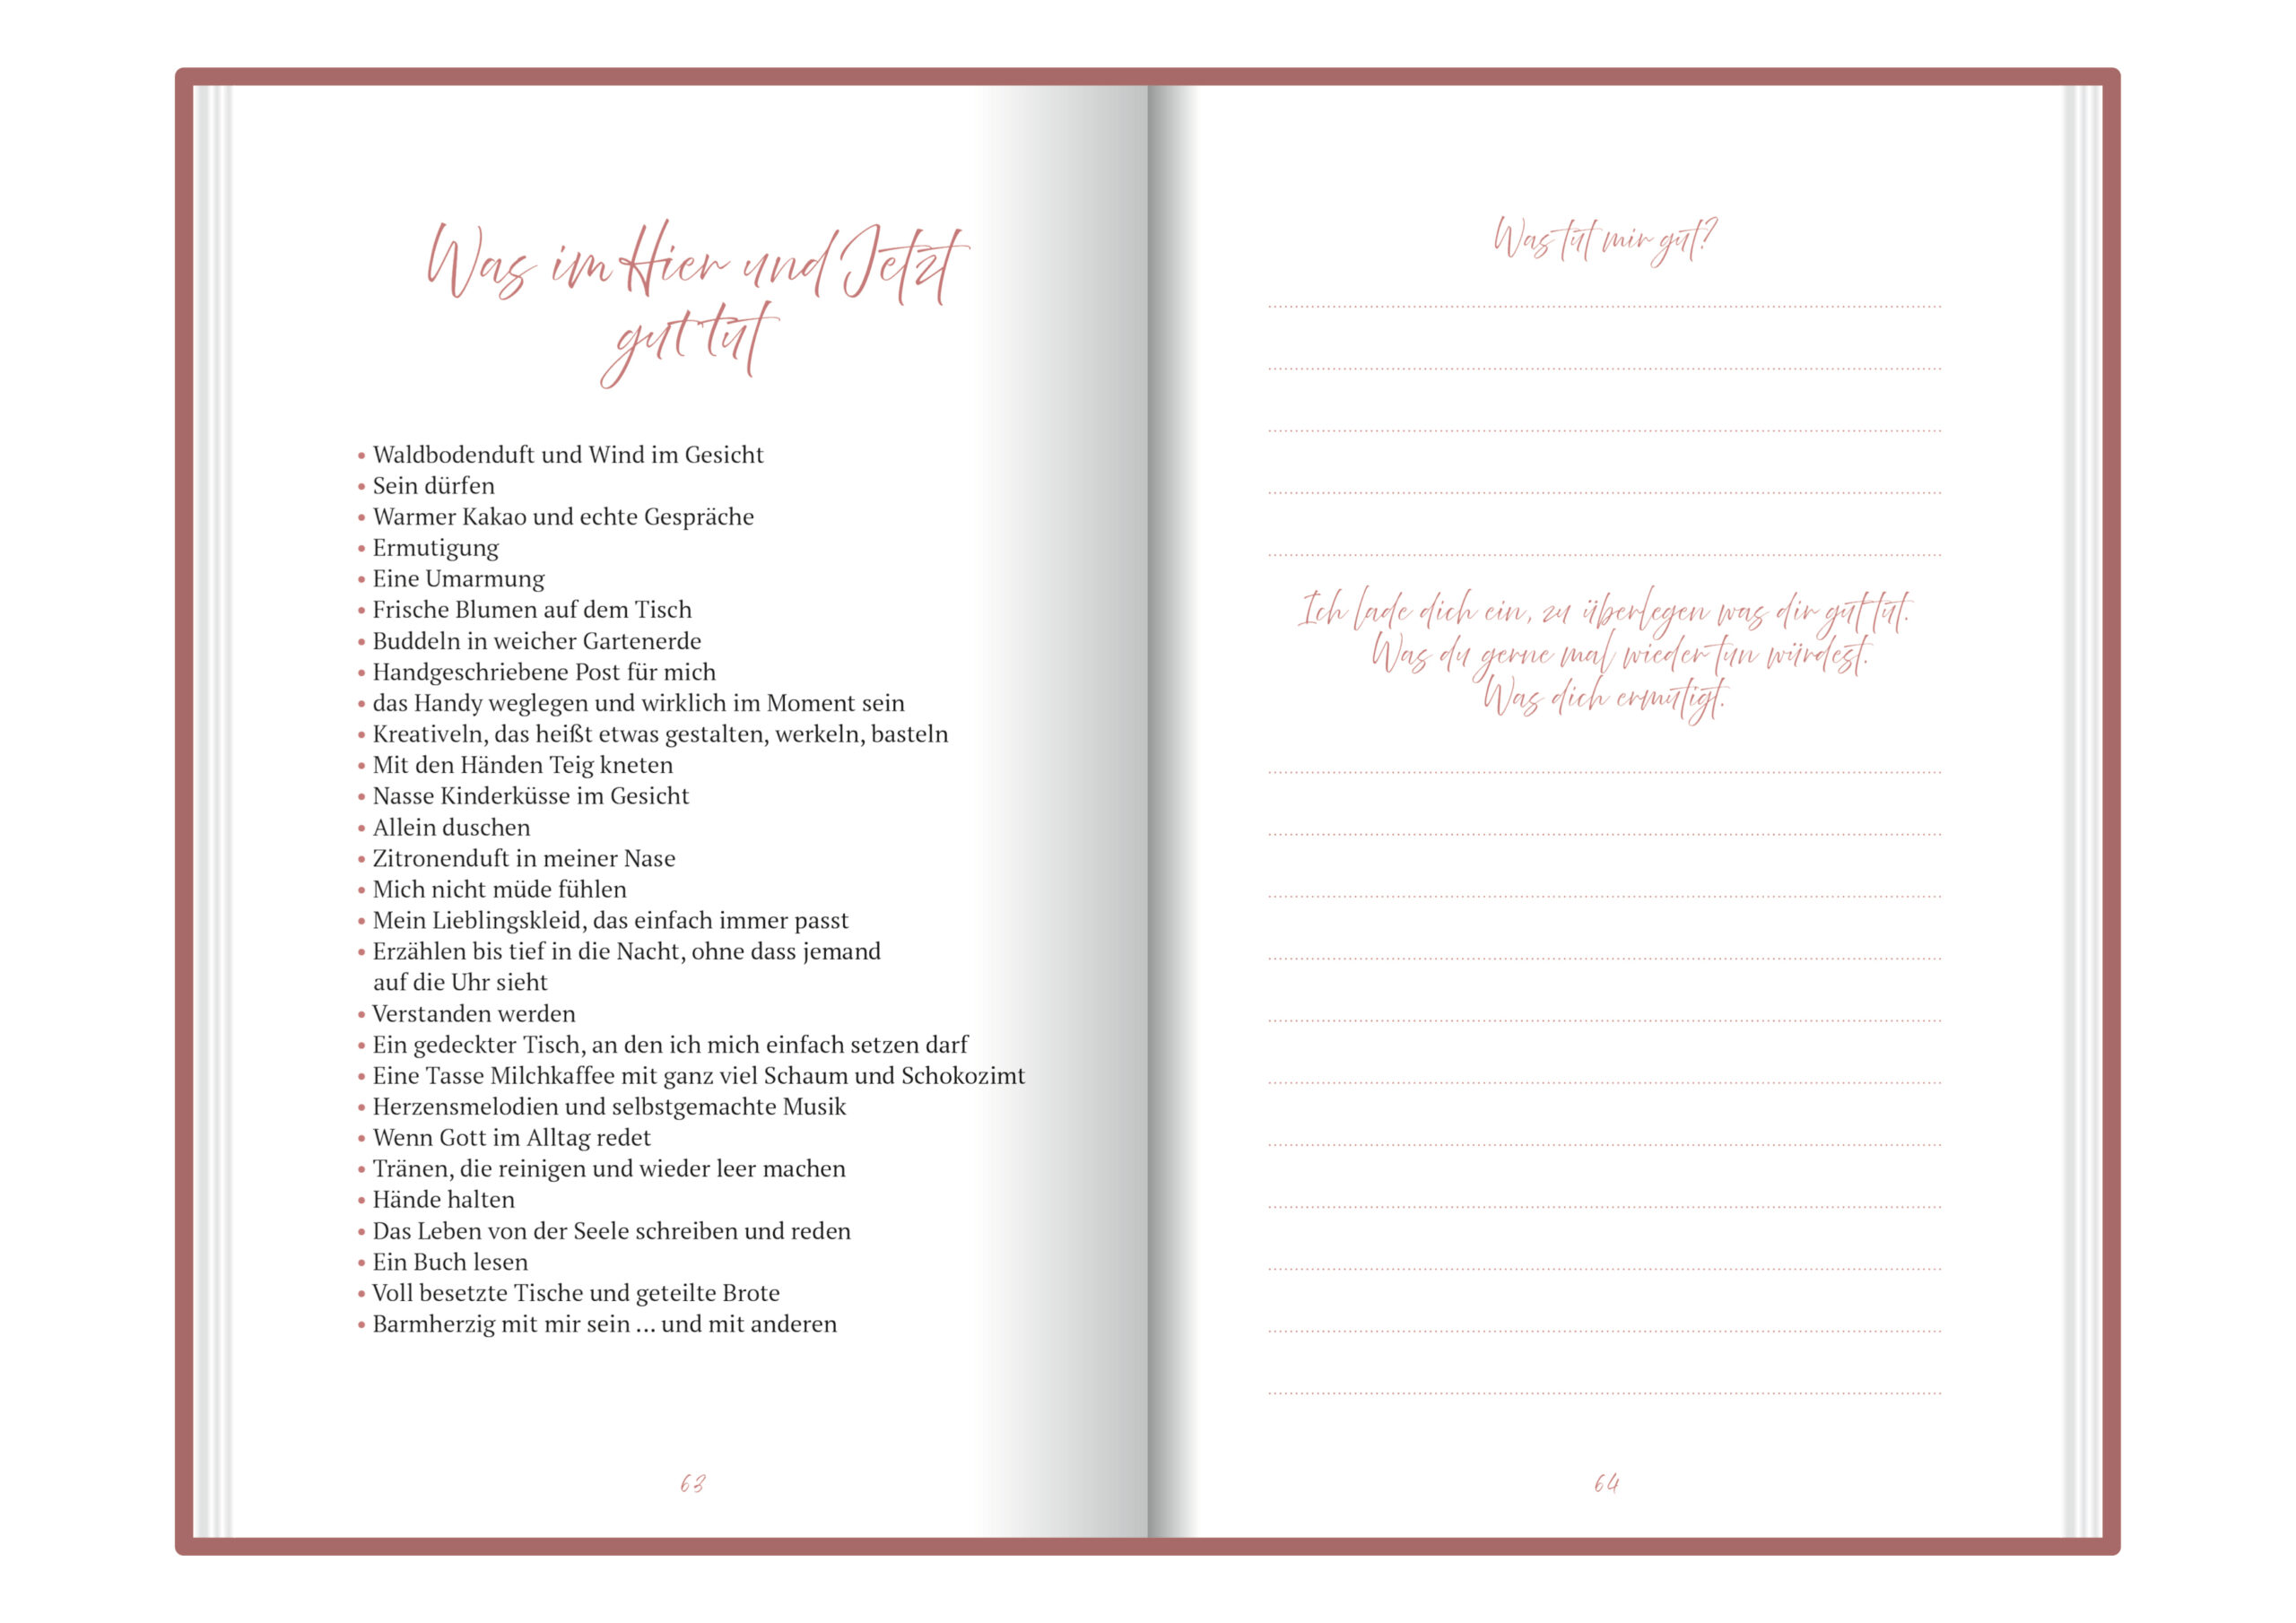 Was im Hier und Jetzt
gut tut
• Waldbodenduft und Wind im Gesicht
• Sein dürfen
• Warmer Kakao und echte Gespräche
• Ermutigung
• Eine Umarmung
• Frische Blumen auf dem Tisch
• Buddeln in weicher Gartenerde
• Handgeschriebene Post für mich
• das Handy weglegen und wirklich im Moment sein
• Kreativeln, das heißt etwas gestalten, werkeln, basteln
• Mit den Händen Teig kneten
• Nasse Kinderküsse im Gesicht
• Allein duschen
• Zitronenduft in meiner Nase
• Mich nicht müde fühlen
• Mein Lieblingskleid, das einfach immer passt
• Erzählen bis tief in die Nacht, ohne dass jemand
auf die Uhr sieht
• Verstanden werden
• Ein gedeckter Tisch, an den ich mich einfach setzen darf
• Eine Tasse Milchkaffee mit ganz viel Schaum und Schokozimt
• Herzensmelodien und selbstgemachte Musik
• Wenn Gott im Alltag redet
• Tränen, die reinigen und wieder leer machen
• Hände halten
• Das Leben von der Seele schreiben und reden
• Ein Buch lesen
• Voll besetzte Tische und geteilte Brote
• Barmherzig mit mir sein ... und mit anderen
63
Was tut mir gut?
Ich lade dich ein, zu überlegen was dir gut tut.
Was du gerne mal wieder tun würdest.
Was dich ermutigt.
64